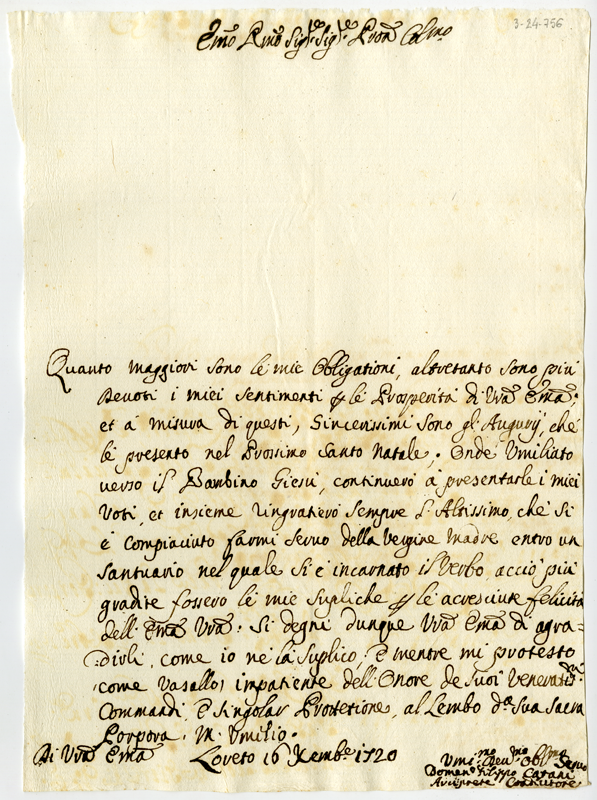 3-24-756
Emo Rmo Sigre Sigre Prone Colmo
Quanto maggiori sono le mie Obligationi, altretanto sono più
devoti i miei sentimenti p le Prosperità di Vra Ema;
et à misura di questi, Sincerissimi sono gl'Augurÿ, che
le presento nel Prossimo Santo Natale. Onde Umiliato
verso il Bambino Giesù, continuerò à presentarle i miei
Voti, et insieme ringratierò sempre l'Altissimo, che si
è compiaciuto farmi servo della Vergine Madre entro un
Santuario nel quale si è incarnato il Verbo, acciò più
gradite fossero le mie supliche p le acresciute felicità
dell'Ema Vra. Si degni dunque Vra Ema di agra=
dirli, come io ne la suplico, E mentre mi protesto
come Vasallo, impatiente dell'Onore de suoi Veneratmi
Commandi, E singolar Prottetione, al Lembo da Sua Sacra
Porpora M'Umilio.
Di Vra Ema Loreto 16 Xembe 1720
Umimo Devmo Oblmo Servo
Domenco Filippo Catani
Arciprete Coadiutore